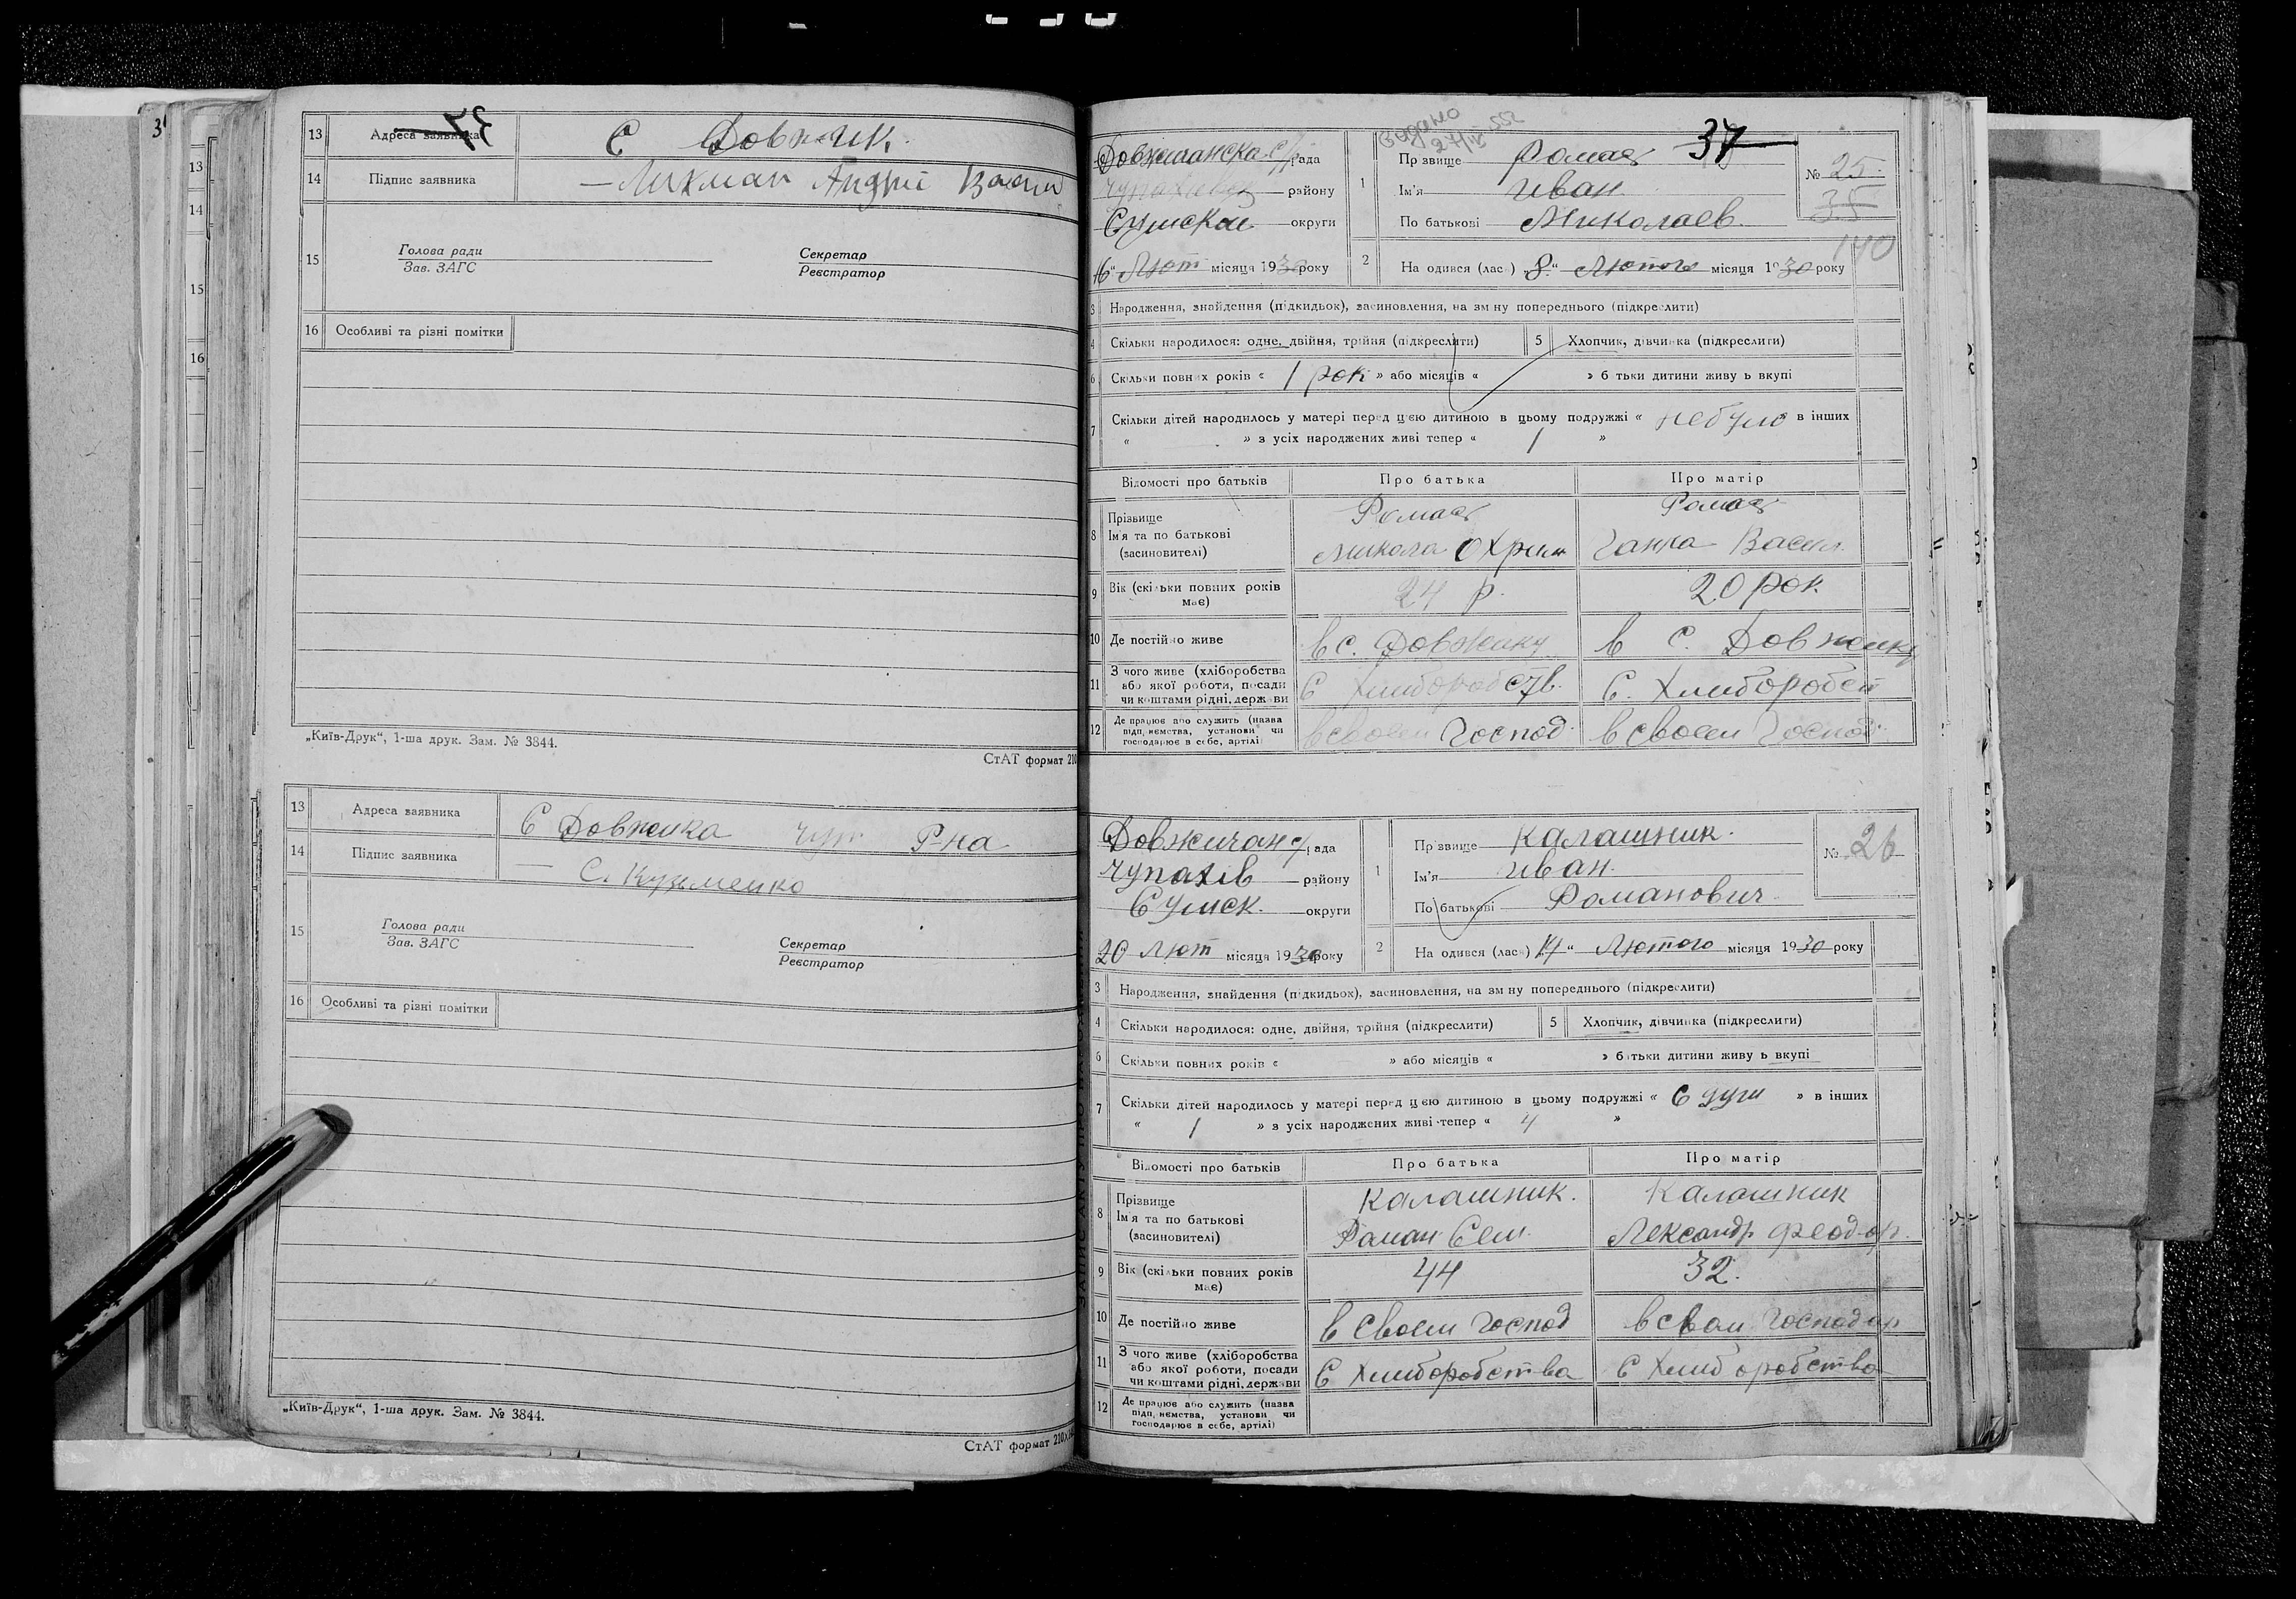 3
13
14
15
16
13 Адреса заявника С Довжик.
14 Підпис заявника — Лихман Андрій Васил
15 Голова ради Секретар
Зав. ЗАГС Реєстратор
16 Особливі та різні помітки
„Київ-Друк“, 1-ша друк. Зам. № 3844.
СтАТ формат 210
13 Адреса заявника С Довжика Чуп Р-на
14 Підпис заявника С. Кузьменко
15 Голова ради Секретар
Зав. ЗАГС Реєстратор
16 Особливі та різні помітки
„Київ-Друк“, 1-ша друк. Зам. № 3844.
СтАТ формат 210
37
рада
1 Прзвище № 25
35
району Ім'я Иван
Сумскои округи По батькові Николаев.
140
16 “ Лют місяця 1930 року 2 На одився (лас ) „8.“ Лютого місяця 1930 року
3 Народження, знайдення (підкидьок), засиновлення, на зм ну попереднього (підкреслити)
4 Скільки народилося: одне, двійня, трійня (підкреслити) 5 Хлопчик, дівчинка (підкреслити)
6 Скільки повних років « 1 рок » або місяців « » б тьки дитини живу ь вкупі
7 Скільки дітей народилось у матері перед цією дитиною в цьому подружжі « небуло » в інших
« » з усіх народжених живі тепер « 1 »
Відомості про батьків Про батька Про матір
8 Прізвище
Ім'я та по батькові
(засиновителі) Микола Охрим Ганна Васил.
9 Вік (скільки повних років має) 24 р. 20 рок.
10 Де постійно живе в с. Довжику в С. Довжику
11 З чого живе (хліборобства
або якої роботи, посади
чи коштами рідні, держави С Хлиборобств. С. Хлиборобст
12 Де працює або служить (назва
підп, иємства, установи чи
господарює в себе, артілі) в своем Господ. в своем Господ.
Довжичан рада
1 Пр звище Калашник. № 26
Чупахів району Ім'я Иван.
Сумск. округи По батькові Романович
20 Лют місяця 1930 року 2 На одився (лася) 14“ Лютого місяця 1930 року
3 Народження, знайдення (підкидьок), засиновлення, на зм ну попереднього (підкреслити)
4 Скільки народилося: одне, двійня, трійня (підкреслити) 5 Хлопчик, дівчинка (підкреслити)
6 Скільки повних років « » або місяців « » б тьки дитини живу ь вкупі
7 Скільки дітей народилось у матері перед цією дитиною в цьому подружжі « » в інших
« 1 » з усіх народжених живі тепер « 4 »
Відомості про батьків Про батька Про матір
8 Прізвище Калашник. Калашник
Ім'я та по батькові
(засиновителі) Роман Сем. Лександр Феодор.
9 Вік (скільки повних років має) 44 32.
10 Де постійно живе в своем Господ в свом Господар
11 З чого живе (хліборобства
або якої роботи, посади
чи коштами рідні, держави С Хлиборобства С Хлиборобства
12 Де працює або служить (назва
підп, иємства, установи чи
господарює в себе, артілі)